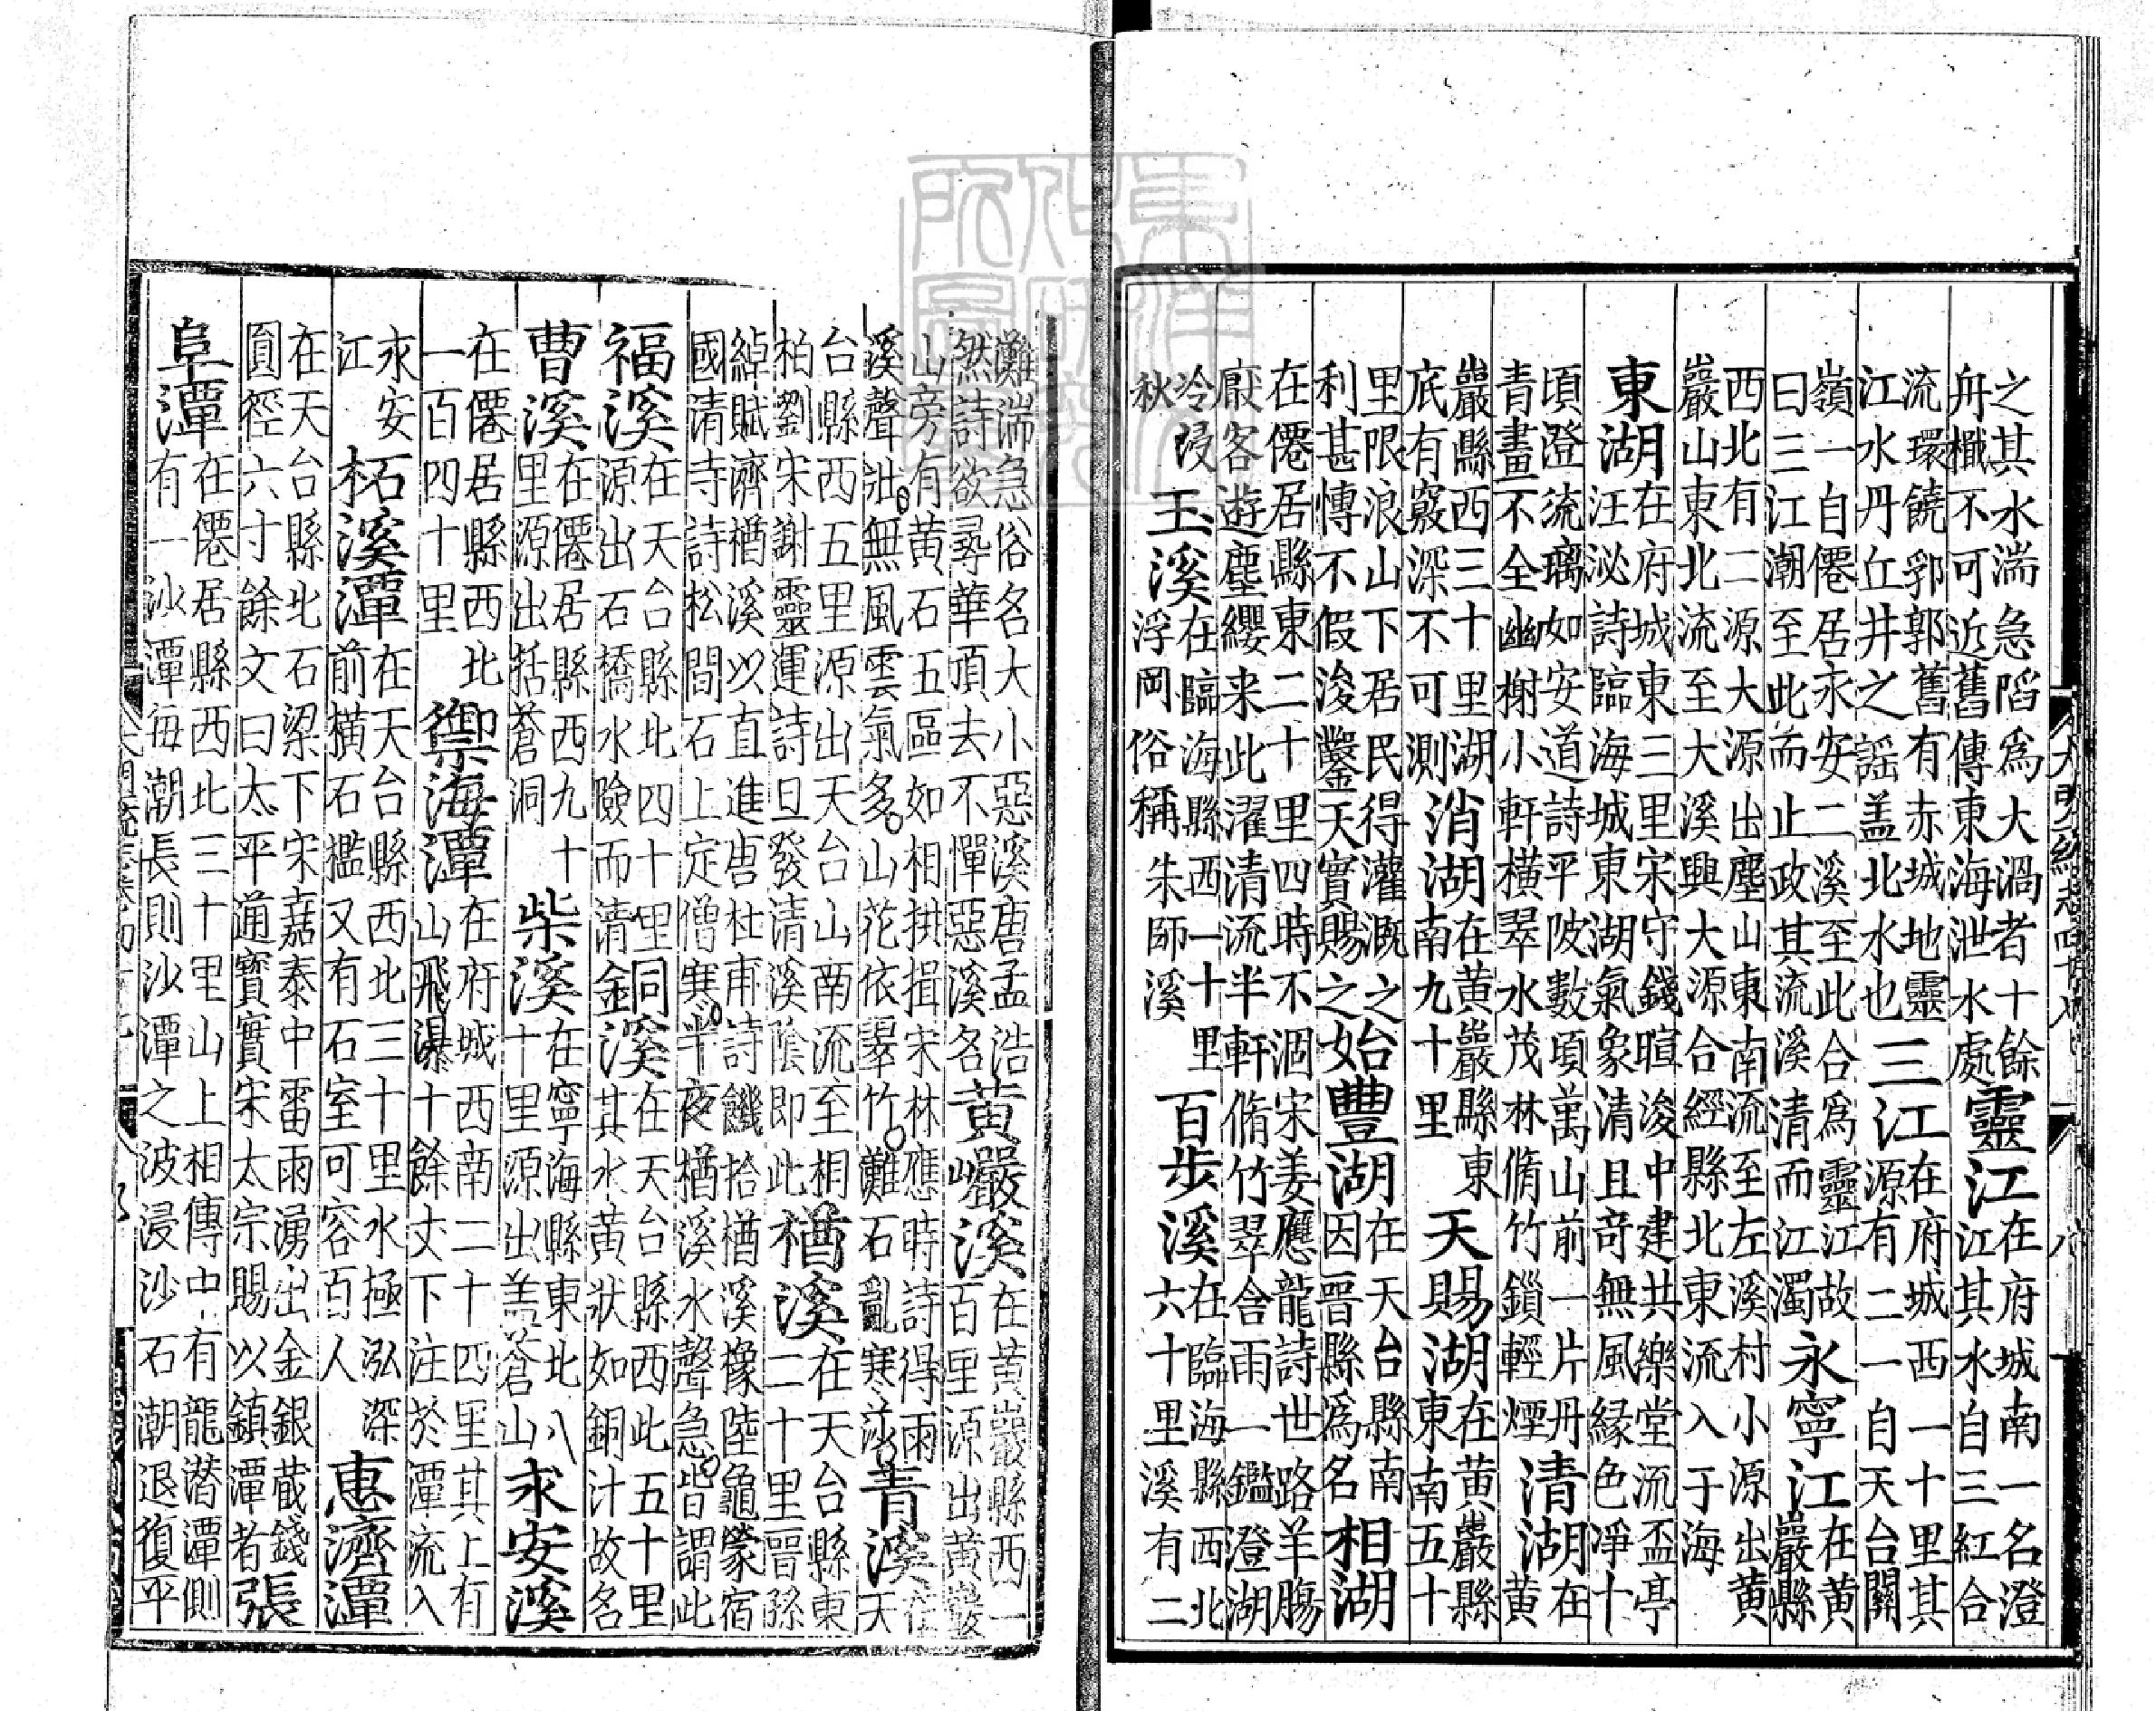 之其水湍急陷爲大渦者十餘舟檝不可近舊傳東海泄水處靈江在府城南一名澄江其水自三紅合
流環饒郛郭舊有赤城地靈江水丹丘井之謡盖北水也三江在府城西一十里其源有二一自天台關
嶺一自僊居永安二溪至此合爲靈江故曰三江潮至此而止政其流溪清而江濁永寧江在黄巖縣
西北有二源大源出塵山東南流至左溪村小源出黄巖山東北流至大溪與大源合經縣北東流入于海
東湖在府城東三里宋守錢暄浚中建共樂堂流盃亭汪泌詩臨海城東湖氣象清且竒無風縁色凈十
頃澄流璃如安道詩平陂數頃萬山前一片丹青畫不全幽榭小軒横翠水茂林脩竹鎖輕煙清湖在黄
巖縣西三十里湖底有竅深不可測消湖在黄巖縣東南九十里天賜湖在黄巖縣東南五十
里限浪山下居民得灌溉之利甚愽不假浚鑿天實賜之始豐湖在天台縣南因晋縣爲名相湖
在僊居縣東二十里四時不涸宋姜應龍詩世路羊腸厭客遊塵纓来此濯清流半軒脩竹翠含雨一鑑澄湖
冷浸秋玉溪在臨海縣西一十里浮岡俗稱朱師溪百步溪在臨海縣西北六十里溪有二
灘湍急俗名大小惡溪唐孟浩然詩欲尋華頂去不憚惡溪名黄巖溪在黄巖縣西一百里源出黄巖
山旁有黄石五區如相拱揖宋林應時詩得雨溪聲壯無風雲氣多山花依翠竹灘石亂寒莎青溪在天
台縣西五里源出天台山南流至相柏劉宋謝靈運詩旦發清溪陰即此楢溪在天台縣東二十里晋孫
綽賦濟楢溪以直進唐杜甫詩饑拾楢溪橡陸龜蒙宿國清寺詩松間石上定僧寒半夜楢溪水聲急皆謂此
福溪在天台縣北四十里源出石橋水險而清銅溪在天台縣西此五十里其水黄狀如銅汁故名
曹溪在僊居縣西九十里源出括蒼洞柴溪在寧海縣東北八十里源出盖蒼山永安溪
在僊居縣西北一百四十里禦海潭在府城西南二十四里其上有山飛瀑十餘丈下注於潭流入
永安江柘溪潭在天台縣西北三十里水極泓深前横石檻又有石室可容百人惠濟潭
在天台縣北石梁下宋嘉泰中雷雨湧出金銀蔵錢圓徑六寸餘文曰太平通寶實宋太宗賜以鎮潭者張
阜潭在僊居縣西北三十里山上相傳中有龍潜潭側有一沙潭毎潮長則沙潭之波浸沙石潮退復平